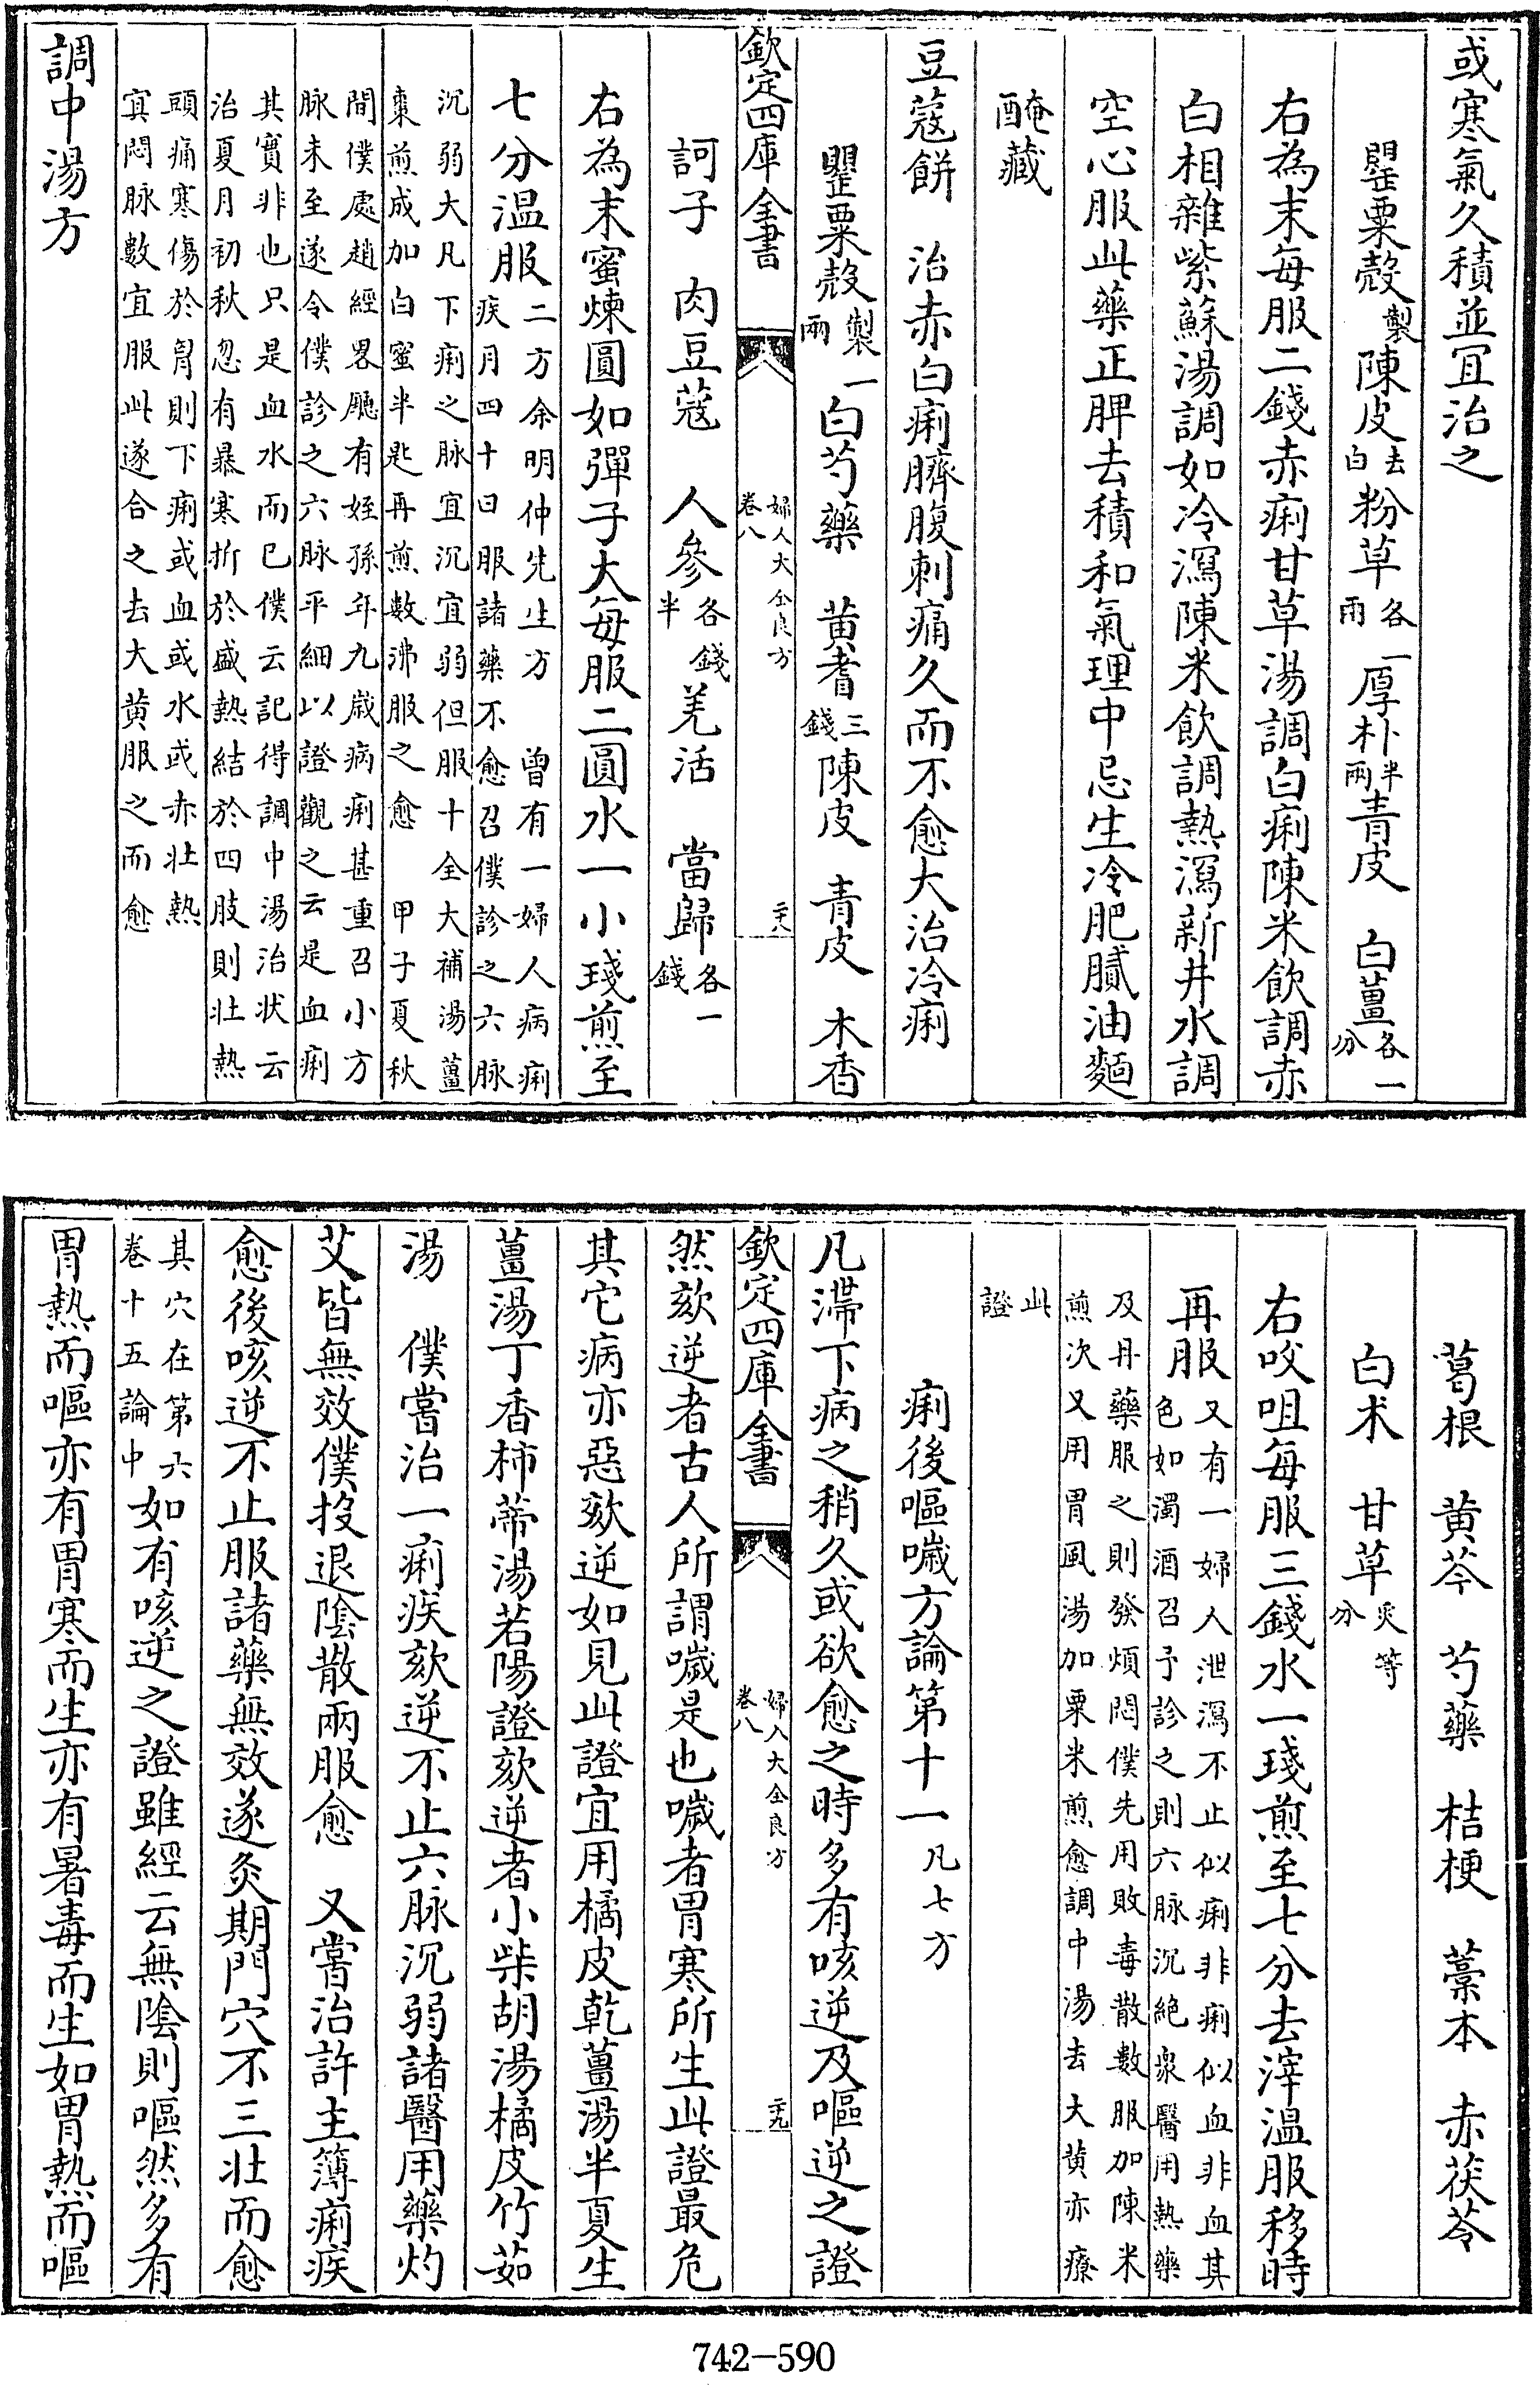 或寒氣久積並宜治之
罌粟殻製陳皮去白粉草各一兩厚朴半兩青皮　白薑各一分
右為末每服二錢赤痢甘草湯調白痢陳米飲調赤
白相雜紫蘇湯調如冷瀉陳米飲調熱瀉新井水調
空心服此藥正脾去積和氣理中忌生冷肥膩油麵
醃藏
豆蔻餅　治赤白痢臍腹刺痛久而不愈大治冷痢
罌粟殻製一兩白芍藥　黄耆三錢陳皮　青皮　木香
欽定四庫全書　婦人大全良方卷八　二十八
訶子　肉豆蔻　人參各半錢羌活　當歸各一錢
右為末蜜煉圓如彈子大每服二圓水一小琖煎至
七分温服二方余明仲先生方　曾有一婦人病痢疾月四十日服諸藥不愈召僕診之六脉
沉弱大凡下痢之脉宜沉宜弱但服十全大補湯薑棗煎成加白蜜半匙再煎數沸服之愈　甲子夏秋
間僕處趙經畧廳有姪孫年九歳病痢甚重召小方脉未至遂令僕診之六脉平細以證觀之云是血痢
其實非也只是血水而已僕云記得調中湯治状云治夏月初秋忽有暴寒折於盛熱結於四肢則壯熱
頭痛寒傷於胃則下痢或血或水或赤壮熱寘悶脉數宜服此遂合之去大黄服之而愈
調中湯方
葛根　黄芩　芍藥　桔梗　藁本　赤茯苓
白术　甘草炙等分
右㕮咀每服三錢水一琖煎至七分去滓温服移時
再服又有一婦人泄瀉不止似痢非痢似血非血其色如濁酒召予診之則六脉沉絶衆醫用熱藥
及丹藥服之則發煩悶僕先用敗毒散數服加陳米煎次又用胃風湯加粟米煎愈調中湯去大黄亦療
此證
痢後嘔噦方論第十一凡七方
凡滯下病之稍久或欲愈之時多有咳逆及嘔逆之證
欽定四庫全書　婦人大全良方卷八　二十九
然欬逆者古人所謂噦是也噦者胃寒所生此證最危
其它病亦惡欬逆如見此證宜用橘皮乾薑湯半夏生
薑湯丁香柿蒂湯若陽證欬逆者小柴胡湯橘皮竹茹
湯　僕嘗治一痢疾欬逆不止六脉沉弱諸醫用藥灼
艾皆無效僕投退陰散兩服愈　又嘗治許主簿痢疾
愈後咳逆不止服諸藥無效遂灸期門穴不三壯而愈
其穴在第六卷十五論中如有咳逆之證雖經云無陰則嘔然多有
胃熱而嘔亦有胃寒而生亦有暑毒而生如胃熱而嘔
742-590